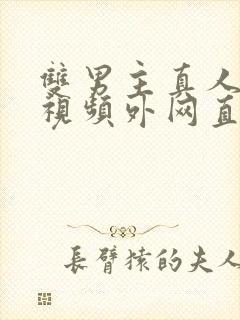 雙男主真人
視頻外网直
長臂猿的夫人